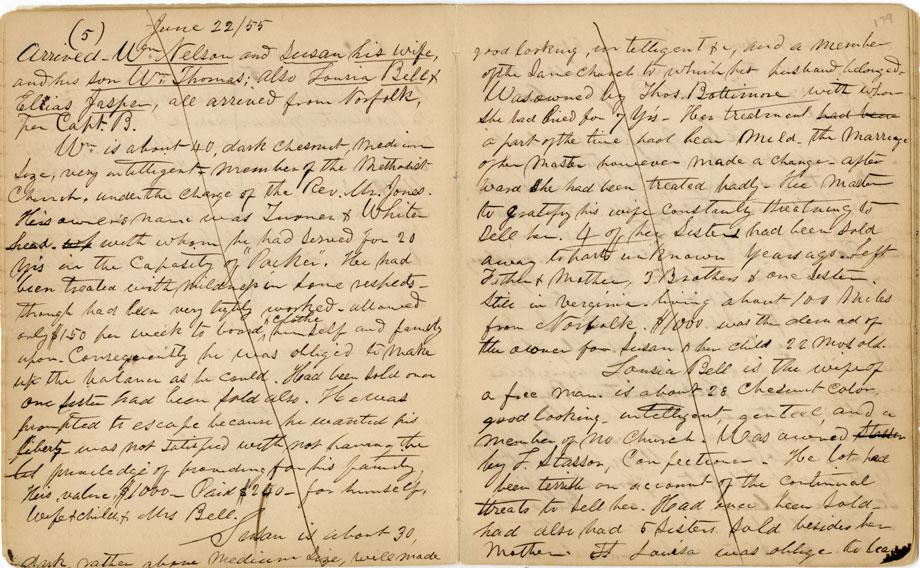 (5) June 22/55
Arrived - Wm Nelson and Susan his wife,
and his son Wm Thomas; also Lousia Bell &
Elias Jasper, all arrived from Norfolk,
per Capt. B.
Wm is about 40, dark chesnut, medium
size, very intelligent - member of the Methodist
Church, under the charge of the Rev. Mr. Jones.
His owner's name was Turner & White
head with whom he had served for 20
Yrs in the Capacity of "Packer". He had
been treated with mildness in some respects -
through had been very tightly worked - allowed
only $1.50 per week to board, Clothe himself and family
upon. Consequently he was obliged to make
up the balance as he could. Had been sold once
one sister had been sold also. He was
prompted to escape because he wanted his
liberty was not satisfied with not having the
priviledge of providing for his family,
His value, $1000 - Paid $240 - for himself,
wife & child & Mrs Bell.
Susan is about 30,
dark, rather above medium size, well made
179
good looking, intelligent &c, and a member
of the Same church to which her husband belonged.
Was owned by Thos. Bottimore with whom
She had lived for Yrs - Her treatment had been
a part of the time had been mild, the marriage
of her Master however made a change - after
ward She had been treated badly - Her Master
to gratify his wife constantly threatning to
sell her. 4 of her Sisters had been sold
away to parts unknown Years ago. Left
Father & Mother, 3 Brothers & one sister
Still in Verginia living about 100 Miles
from Norfolk. $1000 was the demad of
the owner for Susan & her child 22 mos old.
Louisa Bell is the wife of
a free man is about 28 Chesnut Color,
good looking - intelligent, genteel, and a
member of no church. Was owned Stasson
by L. Stasson, Confectioner - He lot had
been terrible on account of the continual
threats to sell her. Had once been sold -
had also had 5 sisters sold besides her
Mother. Louisa was oblige to leave